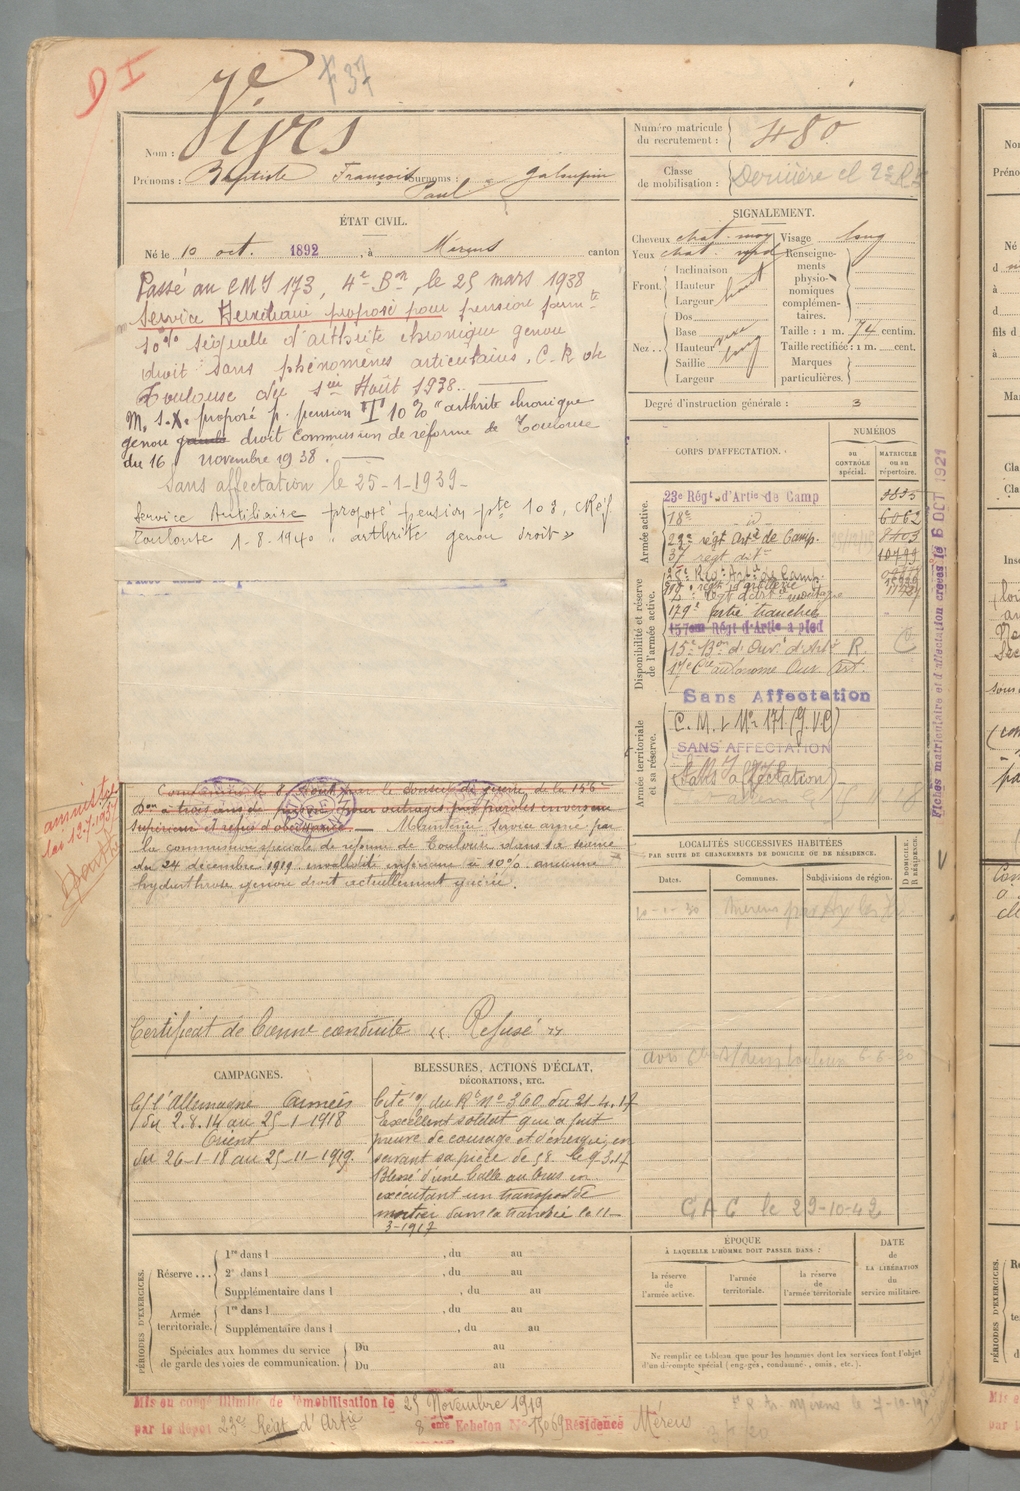 D I
F 37
Nom : Vives
Prénoms : Baptiste François Paul Surnoms : Galsupin
ÉTAT CIVIL.
Né le 10 oct. 1892, à Mérens canton
Passé au CMI 173, 4e Bon, le 25 mars 1938
Service Auxiliaire proposé pour pension permte
10% séquelle d'arthrite chronique genou
droit sans phénomènes articulaires. C.R de
Toulouse du 1er Août 1938.
M. S.X. proposé p. pension "T" 10% "arthrite chronique
genou droit Commission de réforme de Toulouse
du 16 novembre 1938.
Sans affectation le 25-1-1939-
Service Auxiliaire proposé pension pte 103, CRéf.
Toulouse 1-8-1940 "arthrite genou droit"
amnistié
Loi 12.7.1937
Condamné le 8 Août par le conseil de guerre de la 156
Don à trois ans de prison pour outrages par paroles envers un
supérieur et refus d'obéissance. Maintenu service armé par
la commission spéciale de réforme de Toulouse dans sa séance
du 24 décembre 1919. invalidité inférieure à 10% ancienne
hydarthrose genou droit actuellement guérie.
Certificat de bonne conduite "Refusé"
CAMPAGNES.
C/ l'Allemagne Armées
du 2.8.14 au 25-1-1918
Orient
du 26-1-18 au 25-11-1919.
BLESSURES, ACTIONS D'ÉCLAT,
DÉCORATIONS, ETC.
Cité o/ du Rt No 360 du 21.4.17
Excellent soldat qui a fait
preuve de courage et d'énergie en
servant sa pièce de 58. le 9.3.17
Blessé d'une balle au bras en
exécutant un transport de
mortier dans la tranchée le 11-
3-1917
Numéro matricule
du recrutement : 480
Classe
de mobilisation : Dernière cl 2e R
SIGNALEMENT.
Cheveux chat. moy Visage long
Yeux chat.
Front. Inclinaison
Hauteur
Largeur haut
Nez.. Dos
Base
Hauteur
Saillie long
Largeur
Renseignements
physionomiques
complémentaires.
Taille : 1 m. 74 centim.
Taille rectifiée : 1 m. cent.
Marques
particulières.
Degré d'instruction générale : 3
CORPS D'AFFECTATION.
NUMÉROS
au
CONTRÔLE
spécial.
MATRICULE
ou au
répertoire.
Armée active.
23e Régt d'Artie de Camp 3835
18e id 6062
23e régt Art. de Camp. 8403
37 régt dit 10499
Disponibilité et réserve
de l'armée active.
2e régt d'art. montagne
179e artie tranchée
157eme Régt d'Artie à pied
15e Bon d'Ouv. d'Art. R.
17e Cie autonome Ouv. Art.
Sans Affectation
Armée territoriale
et sa réserve.
C.M.I No 171 (G.V.C)
SANS AFFECTATION
(Sans affectation)
Fiches matriculaire et d'affectation créées le 6 OCT 1921
LOCALITÉS SUCCESSIVES HABITÉES
PAR SUITE DE CHANGEMENTS DE DOMICILE OU DE RÉSIDENCE.
D DOMICILE.
R RÉSIDENCE.
Dates. Communes. Subdivisions de région.
Mérens par Ax les
GAC le 29-10-42
PÉRIODES D'EXERCICES.
Réserve ... 1re dans l , du au
2e dans l , du au
Supplémentaire dans l , du au
Armée
territoriale. 1re dans l , du au
Supplémentaire dans l , du au
Spéciales aux hommes du service
de garde des voies de communication. Du au
Du au
ÉPOQUE
À LAQUELLE L'HOMME DOIT PASSER DANS :
la réserve
de
l'armée active.
l'armée
territoriale.
la réserve
de
l'armée territoriale
DATE
de
LA LIBÉRATION
du
service militaire.
Ne remplir ce tableau que pour les hommes dont les services font l'objet
d'un décompte spécial (engagés, condamnés, omis, etc.).
Mis en congé illimité de démobilisation le 25 Novembre 1919
par le dépôt 23e Régt d'Artie 8eme Echelon No 15069 Résidence Mérens